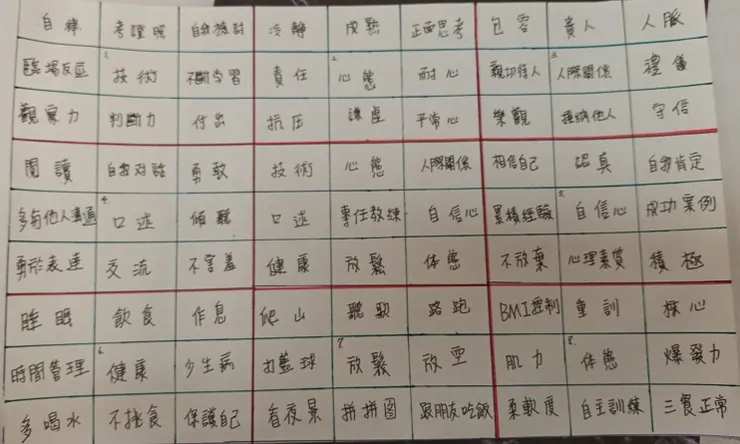 自律 考證照 自我檢討 冷靜 成熟 正面思考 包容 貴人 人脈
臨場反應 1. 技術 不斷學習 責任 2. 心態 耐心 親切待人 3. 人際關係 禮儀
觀察力 判斷力 付出 抗压 謙虛 平常心 樂觀 接納他人 守信
閱讀 自我對話 勇敢 技術 心態 人際關係 相信自己 認真 自我肯定
多與他人溝通 4. 口述 傾聽 口述 專任教練 自信心 累積經驗 5. 自信心 成功案例
勇於表達 交流 不害羞 健康 放鬆 体態 不放棄 心理素質 積極
睡眠 飲食 作息 爬山 聽歌 路跑 BMI控制 重訓 核心
時間管理 6. 健康 少生病 打籃球 7. 放鬆 放空 肌力 8. 体態 爆發力
多喝水 不挑食 保護自己 看夜景 拼拼图 跟朋友吃飯 柔軟度 自主訓練 三餐正常